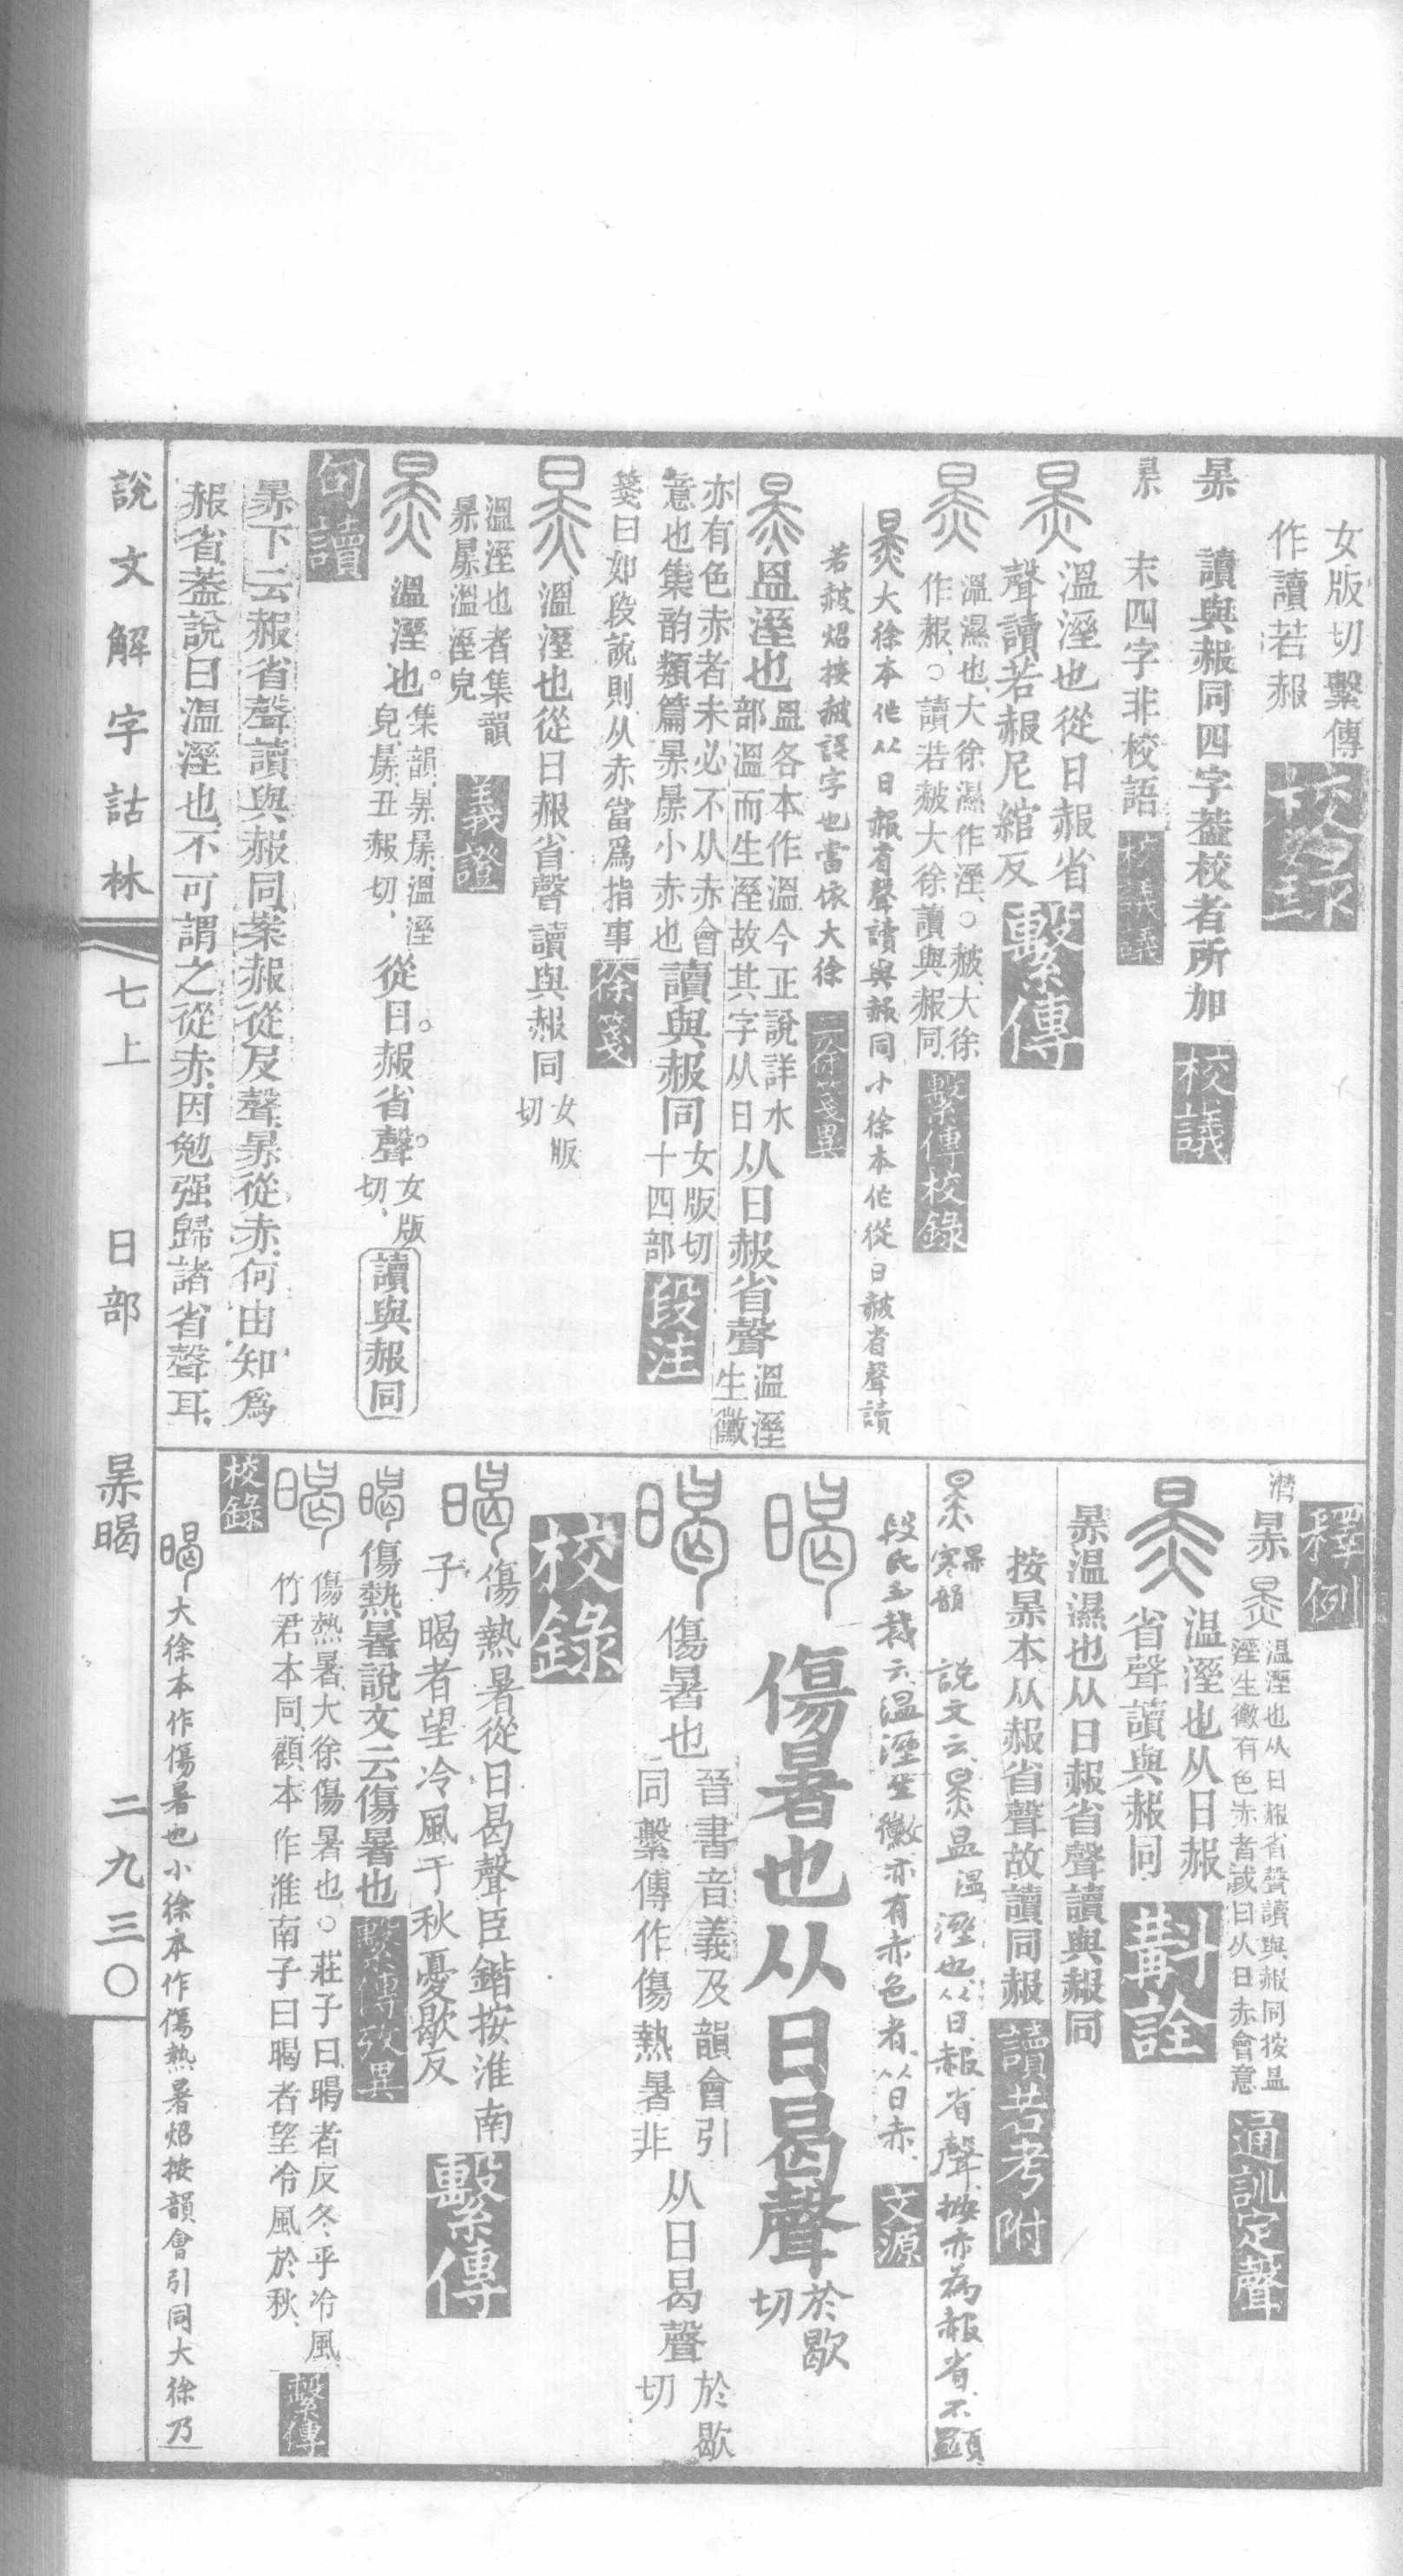 女版切繫傳
作讀若赧
校錄
㬮 讀與赧同四字葢校者所加
校議
㬮 末四字非校語
校議議
溫溼也從日赧省
聲讀若赧尼綰反
繫傳
溫濕也、大徐濕作溼、○赦、大徐
作赧、○讀若赦大徐讀與赧同、
繫傳校錄
㬮大徐本作从日赧省聲讀與赧同小徐本作從日赦省聲讀
若赦炤按赦誤字也當依大徐
二徐箋異
㬮
昷溼也
昷各本作溫今正說詳水
部溫而生溼故其字从日
从日赧省聲
溫溼
生黴
亦有色赤者未必不从赤會
意也集韵類篇㬮㬮小赤也
讀與赧同
女版切
十四部
段注
箋曰如段說則从赤當爲指事
徐箋
溫溼也從日赧省聲讀與赧同
女版
切
溫溼也者集韻
㬮㬮溫溼皃
義證
溫溼也。
集韻、㬮㬮、溫溼
皃、㬮、丑赧切、
從日。赧省聲。
女版
切、
讀與赧同
句讀
㬮下云赧省聲讀與赧同案赧從𠬝聲㬮從赤何由知爲
赧省葢說曰溫溼也不可謂之從赤因勉强歸諸省聲耳、
說文解字詁林
七上
日部
㬮暍
二九三〇
釋例
㬮
溫溼也从日赧省聲讀與赧同按昷
溼生黴有色赤者或曰从日赤會意
通訓定聲
溫溼也从日赧
省聲讀與赧同
斠詮
㬮溫濕也从日赧省聲讀與赧同
按㬮本从赧省聲故讀同赧
讀若考附
寒韻
說文云㬮昷溫溼也、从日、赧省聲、按亦為赧省、不顯
段氏玉裁云溫溼生黴亦有赤色者、从日赤、
文源
暍
傷暑也从日曷聲
於歇
切
傷暑也
晉書音義及韻會引
同繫傳作傷熱暑非
从日曷聲
於歇
切
校錄
傷熱暑從日曷聲臣鍇按淮南
子暍者望冷風于秋憂歇反
繫傳
傷熱暑說文云傷暑也
繫傳攷異
傷熱暑、大徐傷暑也、○莊子曰暍者反冬乎冷風、
竹君本同、顧本作淮南子曰暍者望冷風於秋、
繫傳
校錄
暍大徐本作傷暑也小徐本作傷熱暑炤按韻會引同大徐乃